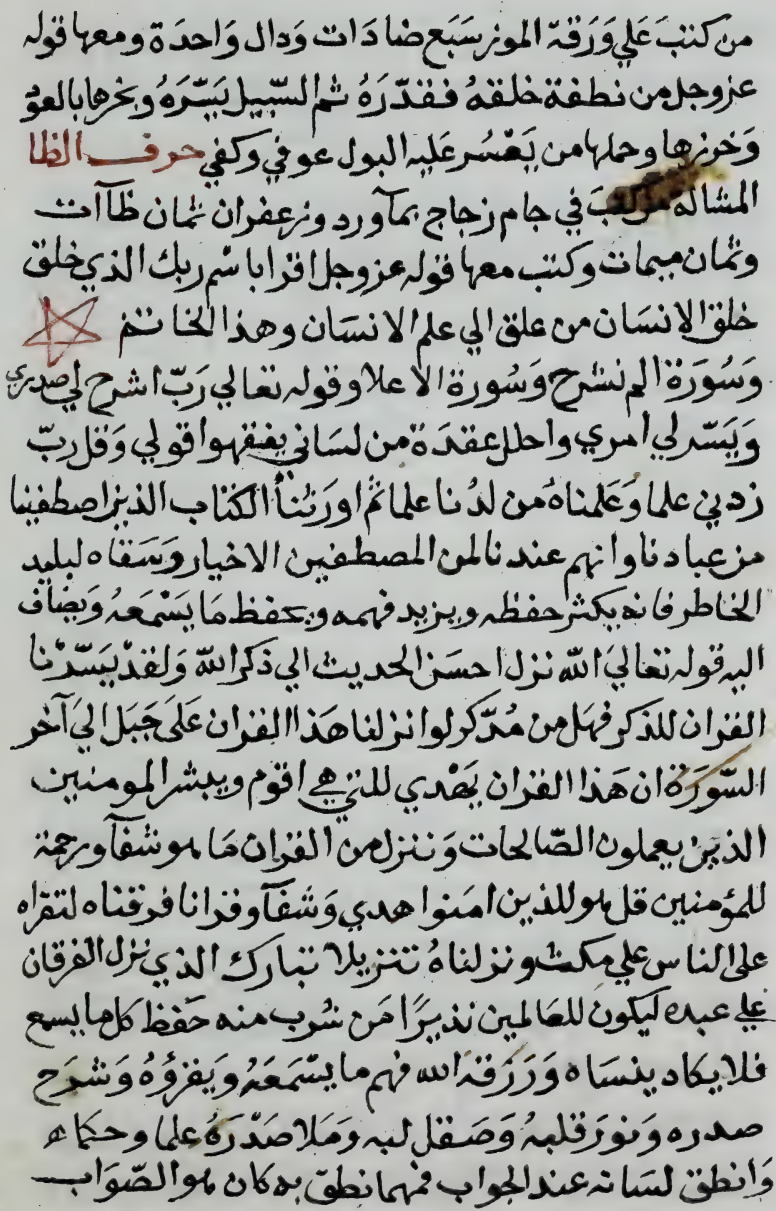 من كتب علي ورقة الموز سبع ضادات ودال واحدة ومعها قوله
عز وجل من نطفة خلقهُ فقدّرَهُ ثم السّبيل يَسّرَهُ وبخرها بالعود
وَخرزها وحملها من يَعْسُر عَليه البول عوفي وكفي حرف الظا
المشالة من كتبَ في جام زجاج بمآورد وزعفران ثمان ظآآت
وثمان ميمات وكتب معها قوله عز وجل اقرا باسْم ربك الذي خلق
خلق الانسَان من علق الي علم الانسَان وهذا الخاتم
وَسُورَة الم نشرح وَسُورة الاعلا وقوله تعالي رَبّ اشرح لي صدري
وَيَسّر لي امري واحلل عقدَة من لسَاني يفقهوا قولي وَقل ربّ
زدني علما وَعَلمناهُ من لدُنا علما ثم اورَثنا الكتاب الذين اصطفينا
من عبادنا وانهم عندنا لمن المصطفين الاخيار وَسَقاه لبليد
الخاطر فانه يكثر حفظه ويزيد فهمه ويحفظ مَا يَسْمَعهُ وَيضاف
اليه قوله تعاليَ الله نزل احسَن الحديث الي ذكر الله وَلقد يَسّرْنا
القران للذكر فهَل من مُدّكر لو انزلنا هَذا القران عَلىَ جَبَل اليَ آخر
السّورَة ان هَذا القران يَهْدي للتي هي اقوَم ويبشر المومنين
الذين يعملون الصّالحات وَننزل من القران مَا هو شفآ ورحمة
للمؤمنين قل هو للذين امَنوا هدي وَشفآ وقرانا فرقناه لتقراه
على الناس علي مكث ونزلناهُ تنزيلا تبارك الذي نزل الفرقان
علي عبده ليكون للعَالمين نذيرًا مَن شرب منه حَفظ كل ما يسمع
فلا يكاد ينسَاه وَرَزَقهُ الله فهم ما يسْمَعَهُ وَيقرؤهُ وَشرَح
صدره وَنورَ قلبهُ وَصَقل لبه وَمَلا صَدْرَهُ علما وحكما
وَانطق لسَانه عند الجواب فمهما نطق به كان هو الصّوَاب